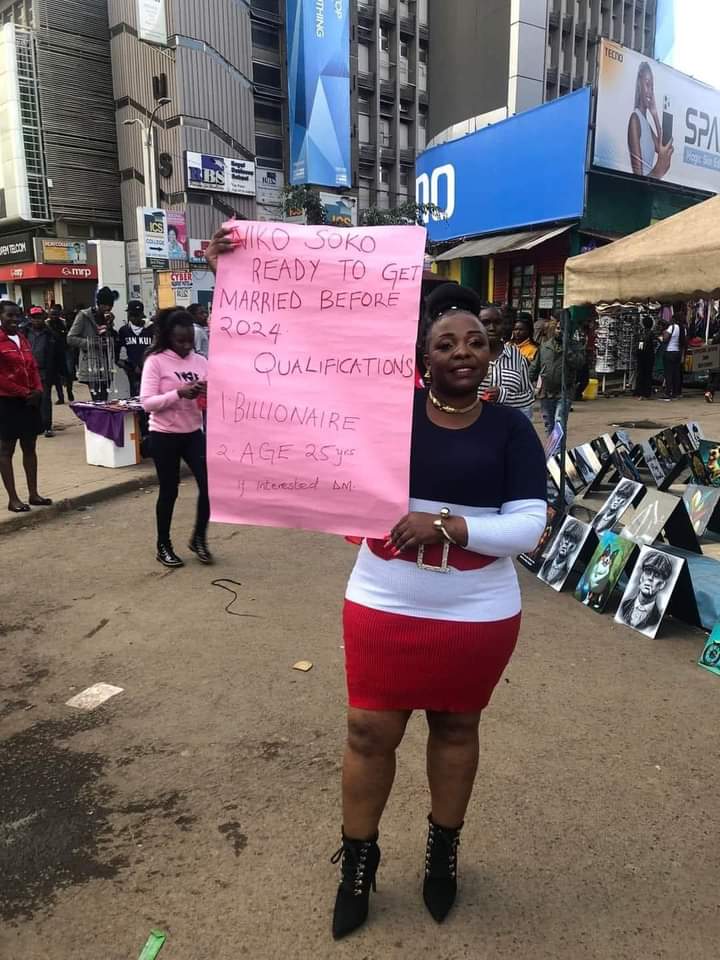 NIKO SOKO
READY TO GET
MARRIED BEFORE
2024.
QUALIFICATIONS
1. BILLIONAIRE
2. AGE 25yrs
if interested DM.
TECNO
SPA
RBS
ICS
COLLEGE
mrp
TELCOM
CYBER